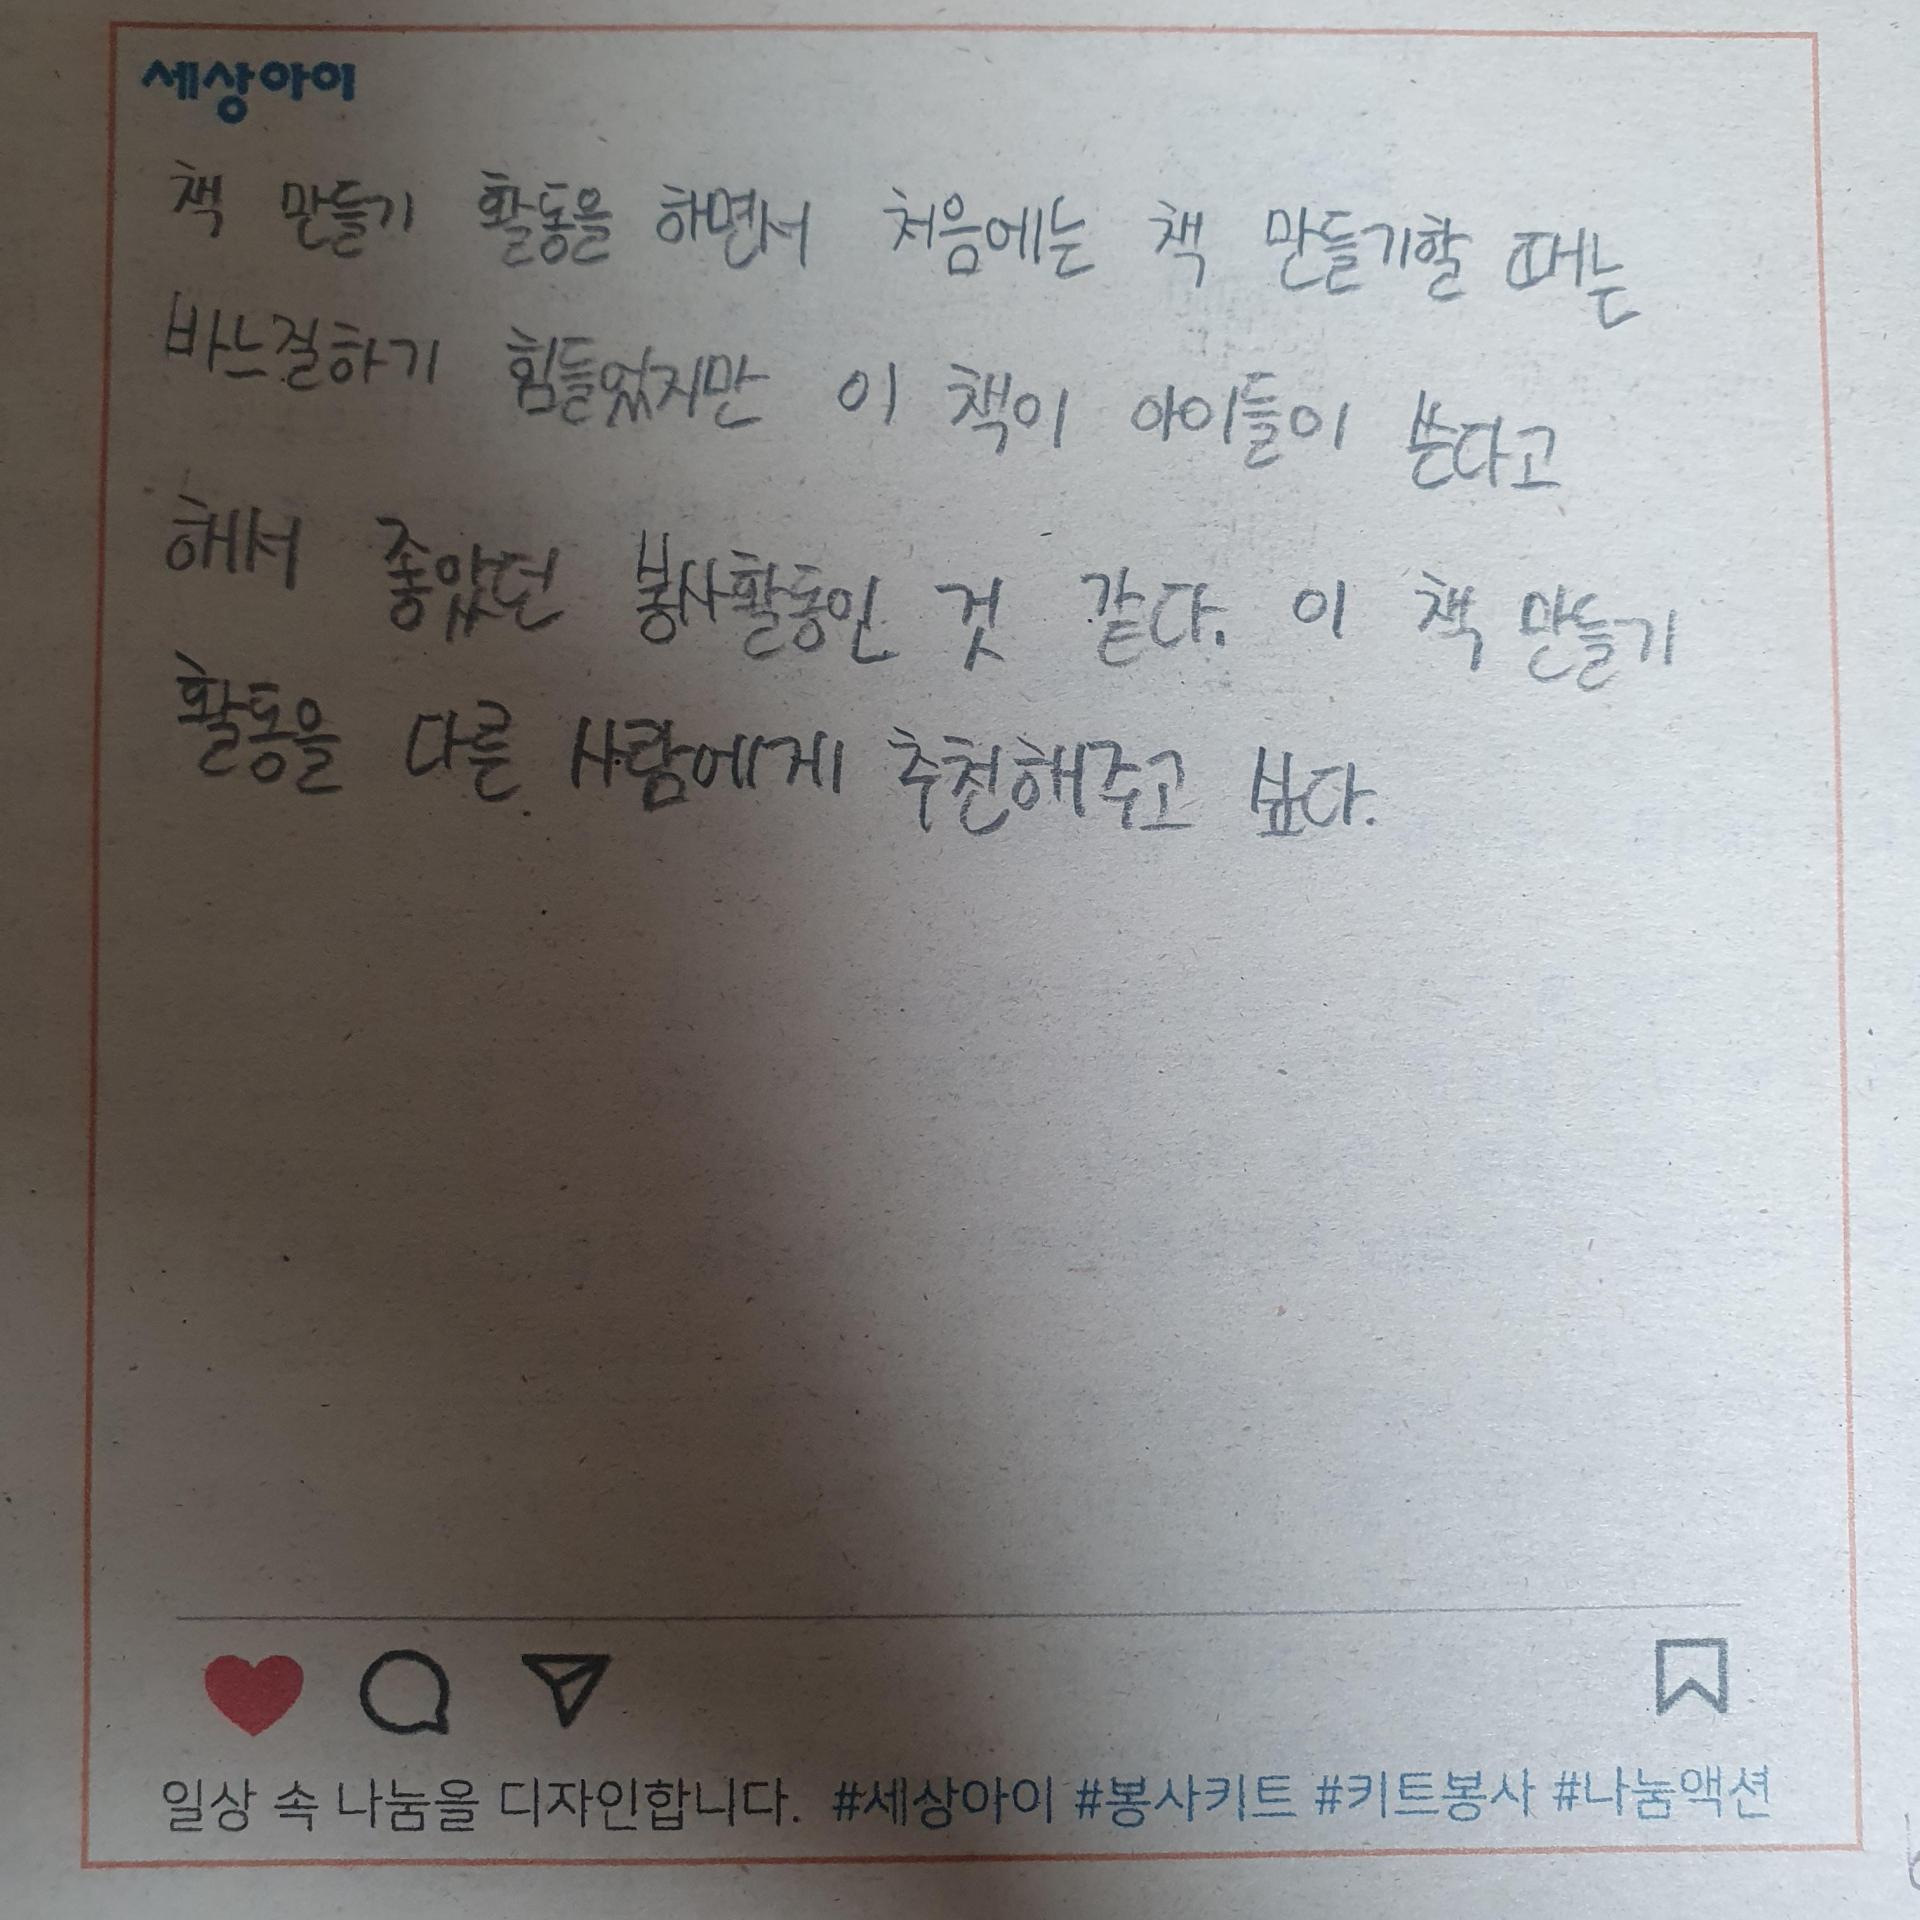 세상아이
책 만들기 활동을 하면서 처음에는 책 만들기할 때는
바느질하기 힘들었지만 이 책이 아이들이 쓴다고
해서 좋았던 봉사활동인 것 같다. 이 책 만들기
활동을 다른 사람에게 추천해주고 싶다.
일상 속 나눔을 디자인합니다. #세상아이 #봉사키트 #키트봉사 #나눔액션